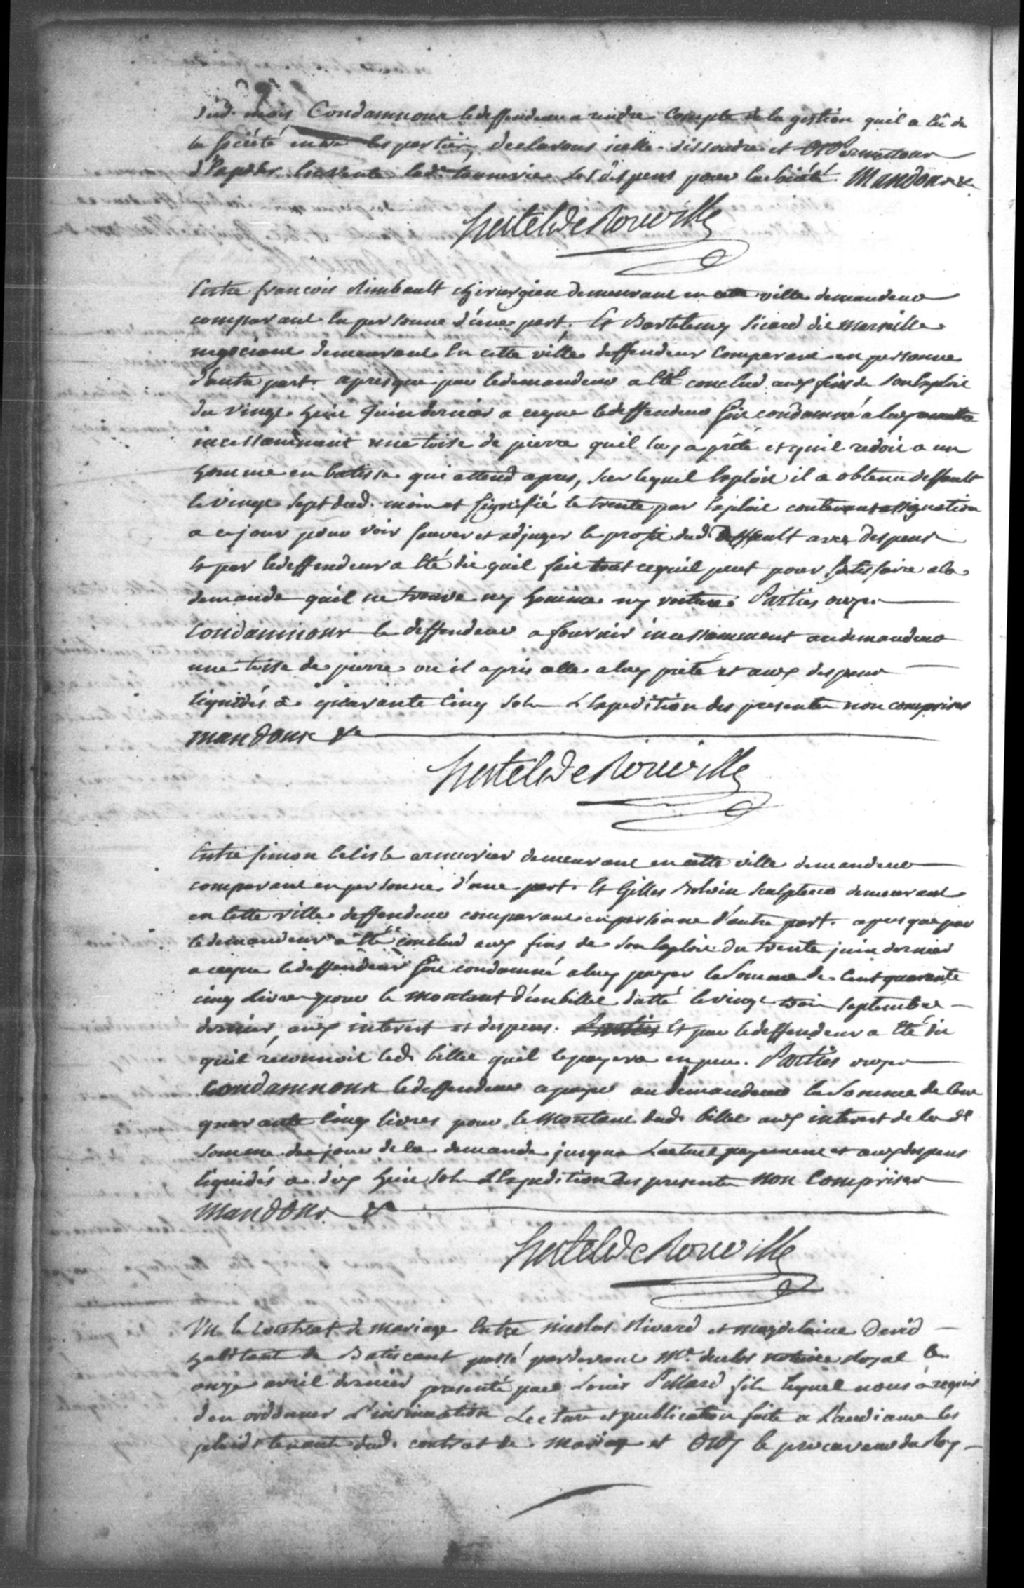 dud. mois Condamnons le deffendeur a rendre Compte de la gestion quil a Eû de
la Société entre les parties, declarons icelle dissoudre et
Mandons &c
Hertel de Rouville
Entre françois Rimbault chirurgien demeurant en cette ville demandeur
comparant En personne d'une part. Et Bartelemy Sicard de Marseille
negociant demeurant En cette ville deffendeur Comparant en personne
d'autre part. apres que par le demandeur a Eté conclud aux fins de son Exploit
du vingt huit juin dernier a ceque le deffendeur soit condamné a luy remettre
incessamment une toise de pierre quil luy a prêté et quil redoit a un
homme en batisse qui attend apres, sur lequel Exploit il a obtenu deffault
le vingt sept dud. mois et signifié le trente par Exploit contenant assignation
a ce jour pour voir sauver et adjuger le profit dud. deffault avec depens
Et par le deffendeur a Eté dit quil fait tout ce quil peut pour satisfaire a la
demande quil ne trouve ny homme ny voiture. Parties ouyes
Condamnons le deffendeur a fournir incessamment au demandeur
une toise de pierre ou il a pris celle a luy prêté et aux depens
liquidés a quarante cinq sols L'Expedition des presentes non comprises
Mandons &c
Hertel de Rouville
Entre Simon Delisle armurier demeurant en cette ville demandeur
comparant en personne d'une part. Et Gilles Bolvin sculpteur demeurant
en Cette ville deffendeur comparant en personne d'autre part. apres que par
le demandeur a Eté conclud aux fins de son Exploit du trente juin dernier
a ceque le deffendeur soit condamné a luy payer la Somme de Cent quarante
cinq Livres pour le montant d'un billet datté le vingt trois septembre
dernier aux interest et depens. Et par le deffendeur a Eté dit
quil reconnoit led. billet quil le payera en peu. Parties ouyes
Condamnons le deffendeur a payer au demandeur la Somme de Cent
quarante Cinq livres pour le Montant dud. billet aux interest de la de
Somme du jour de la demande jusqua L'actuel payement et aux depens
liquidés a dix huit sols L'Expedition des presentes non Comprises
Mandons &c
Hertel de Rouville
Vu le contrat de mariage Entre Nicolas Rivard et Magdelaine David
habitant de Batiscant passé pardevant Me. notaire Royal Le
onze avril dernier presenté par Louis Pillard fils lequel nous a requis
d'en ordonner L'insinuation Lecture et publication faite a L'audiance les
plaids tenant dud. contrat de mariage et Ouy le procureur du Roy